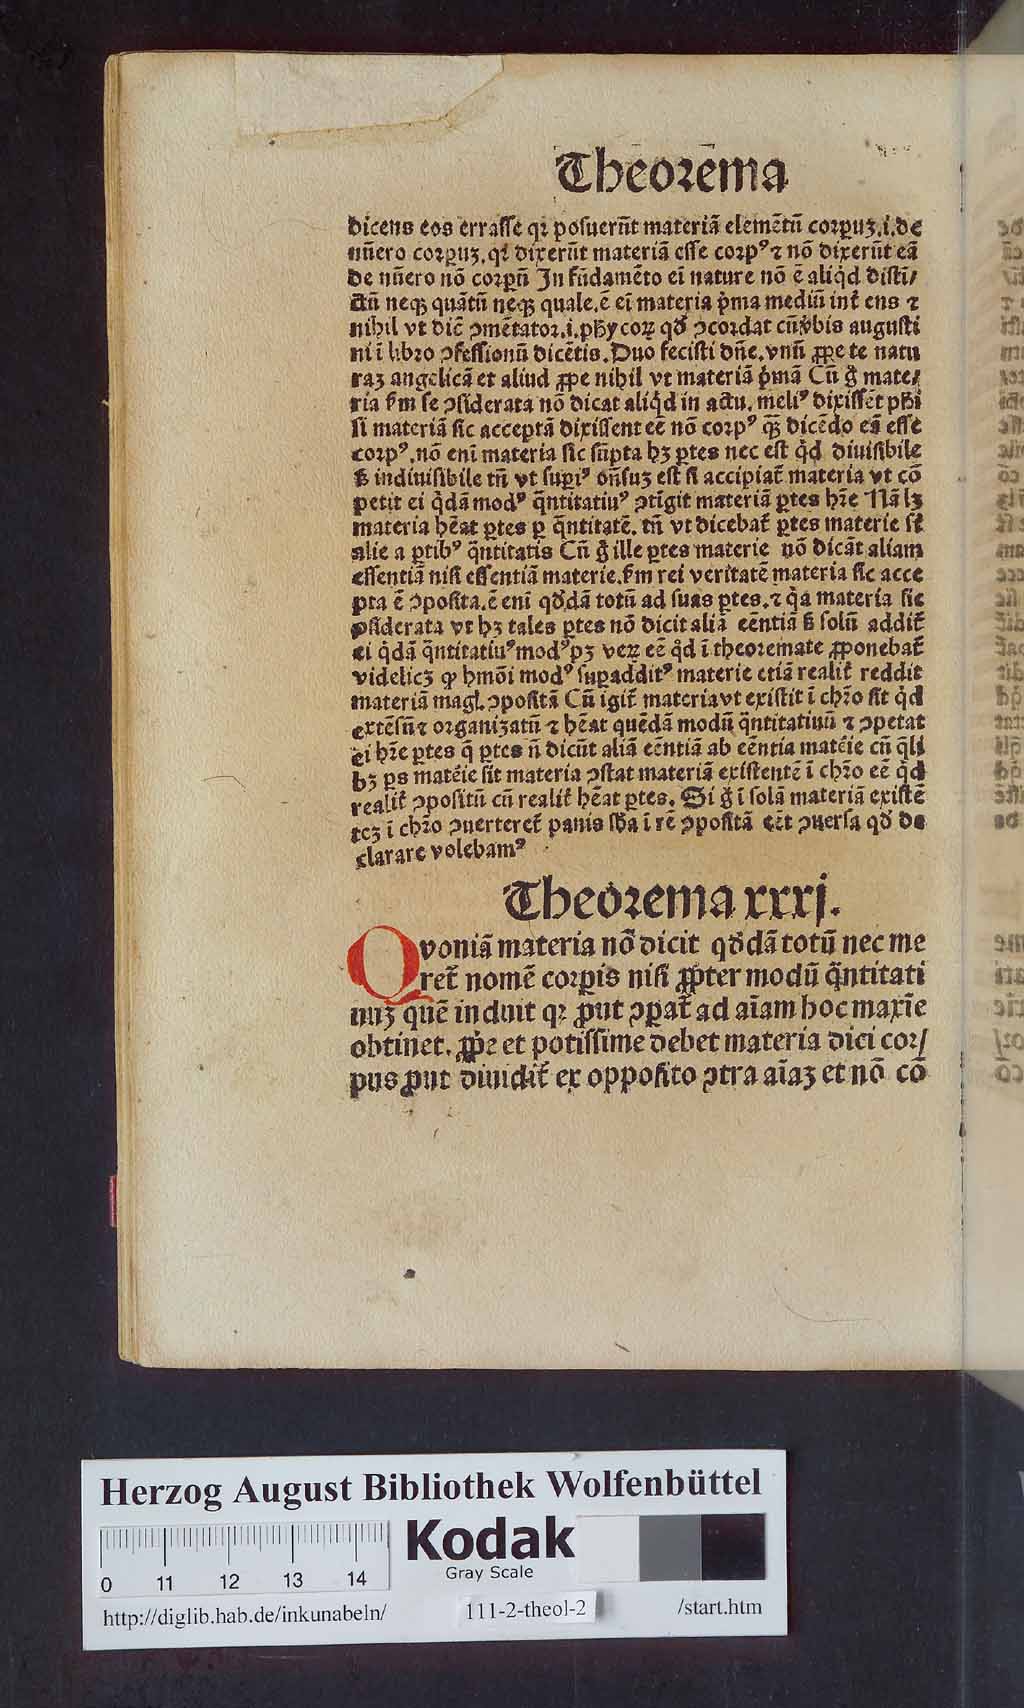 Theorēma
dicens eos errasse qꝛ posuerūt materiā elemētū corpuꝫ.i.de
nūero corpuꝫ.qꝛ dixerūt materiā esse corpꝰ ⁊ nō dixerūt eā
de nūero nō corpꝝ In fūdamēto ei nature nō ē aliq̇d disti/
ctū neqꝫ quātū neqꝫ quale.ē ei materia pͥma mediū int̄ ens ⁊
nihil vt dic̄ ꝯmētator.i.phycoꝝ qđ ꝯcordat cū v̄bis augusti
ni ī libro ꝯfessionū dicētis. Duo fecisti dn̄e.vnū ꝓpe te natu
raꝫ angelicā et aliud ꝓpe nihil vt materiā pͥmā Cū g̊ mate/
ria ẜm se ꝯsiderata nō dicat aliq̇d in actu. meliꝰ dixissēt pħi
si materiā sic acceptā dixissent eē nō corpꝰ qꝫ̄ dicēdo eā esse
corpꝰ.nō enī materia sic sūpta hꝫ ꝑtes nec est q̇d diuisibile
ẞ indiuisibile tn̄ vt supiꝰ on̄suꝫ est si accipiat̄ materia vt cō
petit ei q̇dā modꝰ q̄ntitatiuꝰ ꝯtigit materiā ꝑtes hr̄e Nā lꝫ
materia hēat ꝑtes ꝑ q̄ntitatē. tn̄ vt dicebat̄ ꝑtes materie st̄
alie a ꝑtibꝰ q̄ntitatis Cū g̊ ille ꝑtes materie nō dicāt aliam
essentiā nisi essentiā materie.ẜm rei veritatē materia sic acce
pta ē ꝯposita.ē enī qđdā totū ad suas ꝑtes.⁊ q̇a materia sic
ꝯsiderata vt hꝫ tales ꝑtes nō dicit aliā eēntiā ẞ solū addit̄
ei q̇dā q̄ntitatiuꝰ modꝰ pꝫ veꝝ eē q̇d ī theoremate ꝓponebat̄
videlicꝫ ꝙ hmōi modꝰ supadditꝰ materie etiā realit̄ reddit
materiā magꝭ ꝯpositā Cū igit̄ materia vt existit ī chr̄o sit q̇d
extēsū ⁊ organizatū ⁊ hēat quēdā modū q̄ntitatiuū ⁊ ꝯpetat
ei hr̄e ꝑtes q̄ ꝑtes n̄ dicūt aliā eēntiā ab eēntia mat̄ie cū q̄li
bꝫ ps mat̄ie sit materia ꝯstat materiā existentē ī chr̄o eē q̇d
realit̄ ꝯpositū cū realit̄ hēat ꝑtes. Si g̊ ī solā materiā existē
teꝫ ī chr̄o ꝯuerteret̄ panis sb̄a ī rē ꝯpositā eēt ꝯuersa qđ de
clarare volebamꝰ
Theorema xxxj.
Qvoniā materia nō dicit qđdā totū nec me
ret̄ nomē corꝑis nisi ꝓpter modū q̄ntitati
uuꝫ quē induit qꝛ ꝓut ꝯpat̄ ad aīam hoc maxīe
obtinet. ꝓpͥe et potissime debet materia dici cor/
pus ꝓut diuidit̄ ex opposito ꝯtra aīaꝫ et nō cō
Herzog August Bibliothek Wolfenbüttel
0 11 12 13 14
Kodak
Gray Scale
http://diglib.hab.de/inkunabeln/ 111-2-theol-2 /start.htm